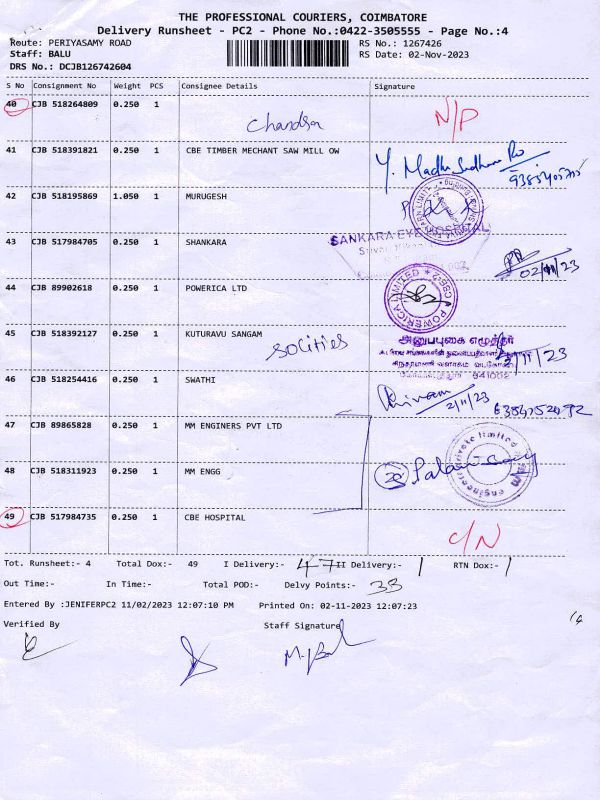 THE PROFESSIONAL COURIERS, COIMBATORE
Delivery Runsheet - PC2 - Phone No.:0422-3505555 - Page No.:4
Route: PERIYASAMY ROAD RS No.: 1267426
Staff: BALU RS Date: 02-Nov-2023
DRS No.: DCJB126742604
S No Consignment No Weight PCS Consignee Details Signature
40 CJB 518264809 0.250 1 N/P
Chandra
41 CJB 518391821 0.250 1 CBE TIMBER MECHANT SAW MILL OW
Y. Madhu
42 CJB 518195869 1.050 1 MURUGESH
SANKARA EYE HOSPITAL
43 CJB 517984705 0.250 1 SHANKARA
02/11/23
44 CJB 89902618 0.250 1 POWERICA LTD
POWERICA LIMITED CBE-2
45 CJB 518392127 0.250 1 KUTURAVU SANGAM
socities
அனுபபுகை எழுத்தர்
2/11/23
641002
46 CJB 518254416 0.250 1 SWATHI
2/11/23
47 CJB 89865828 0.250 1 MM ENGINERS PVT LTD
48 CJB 518311923 0.250 1 MM ENGG
49 CJB 517984735 0.250 1 CBE HOSPITAL
C/N
Tot. Runsheet:- 4 Total Dox:- 49 I Delivery:- 47 II Delivery:- 1 RTN Dox:- 1
Out Time:- In Time:- Total POD:- Delvy Points:- 38
Entered By :JENIFERPC2 11/02/2023 12:07:10 PM Printed On: 02-11-2023 12:07:23
Verified By Staff Signature